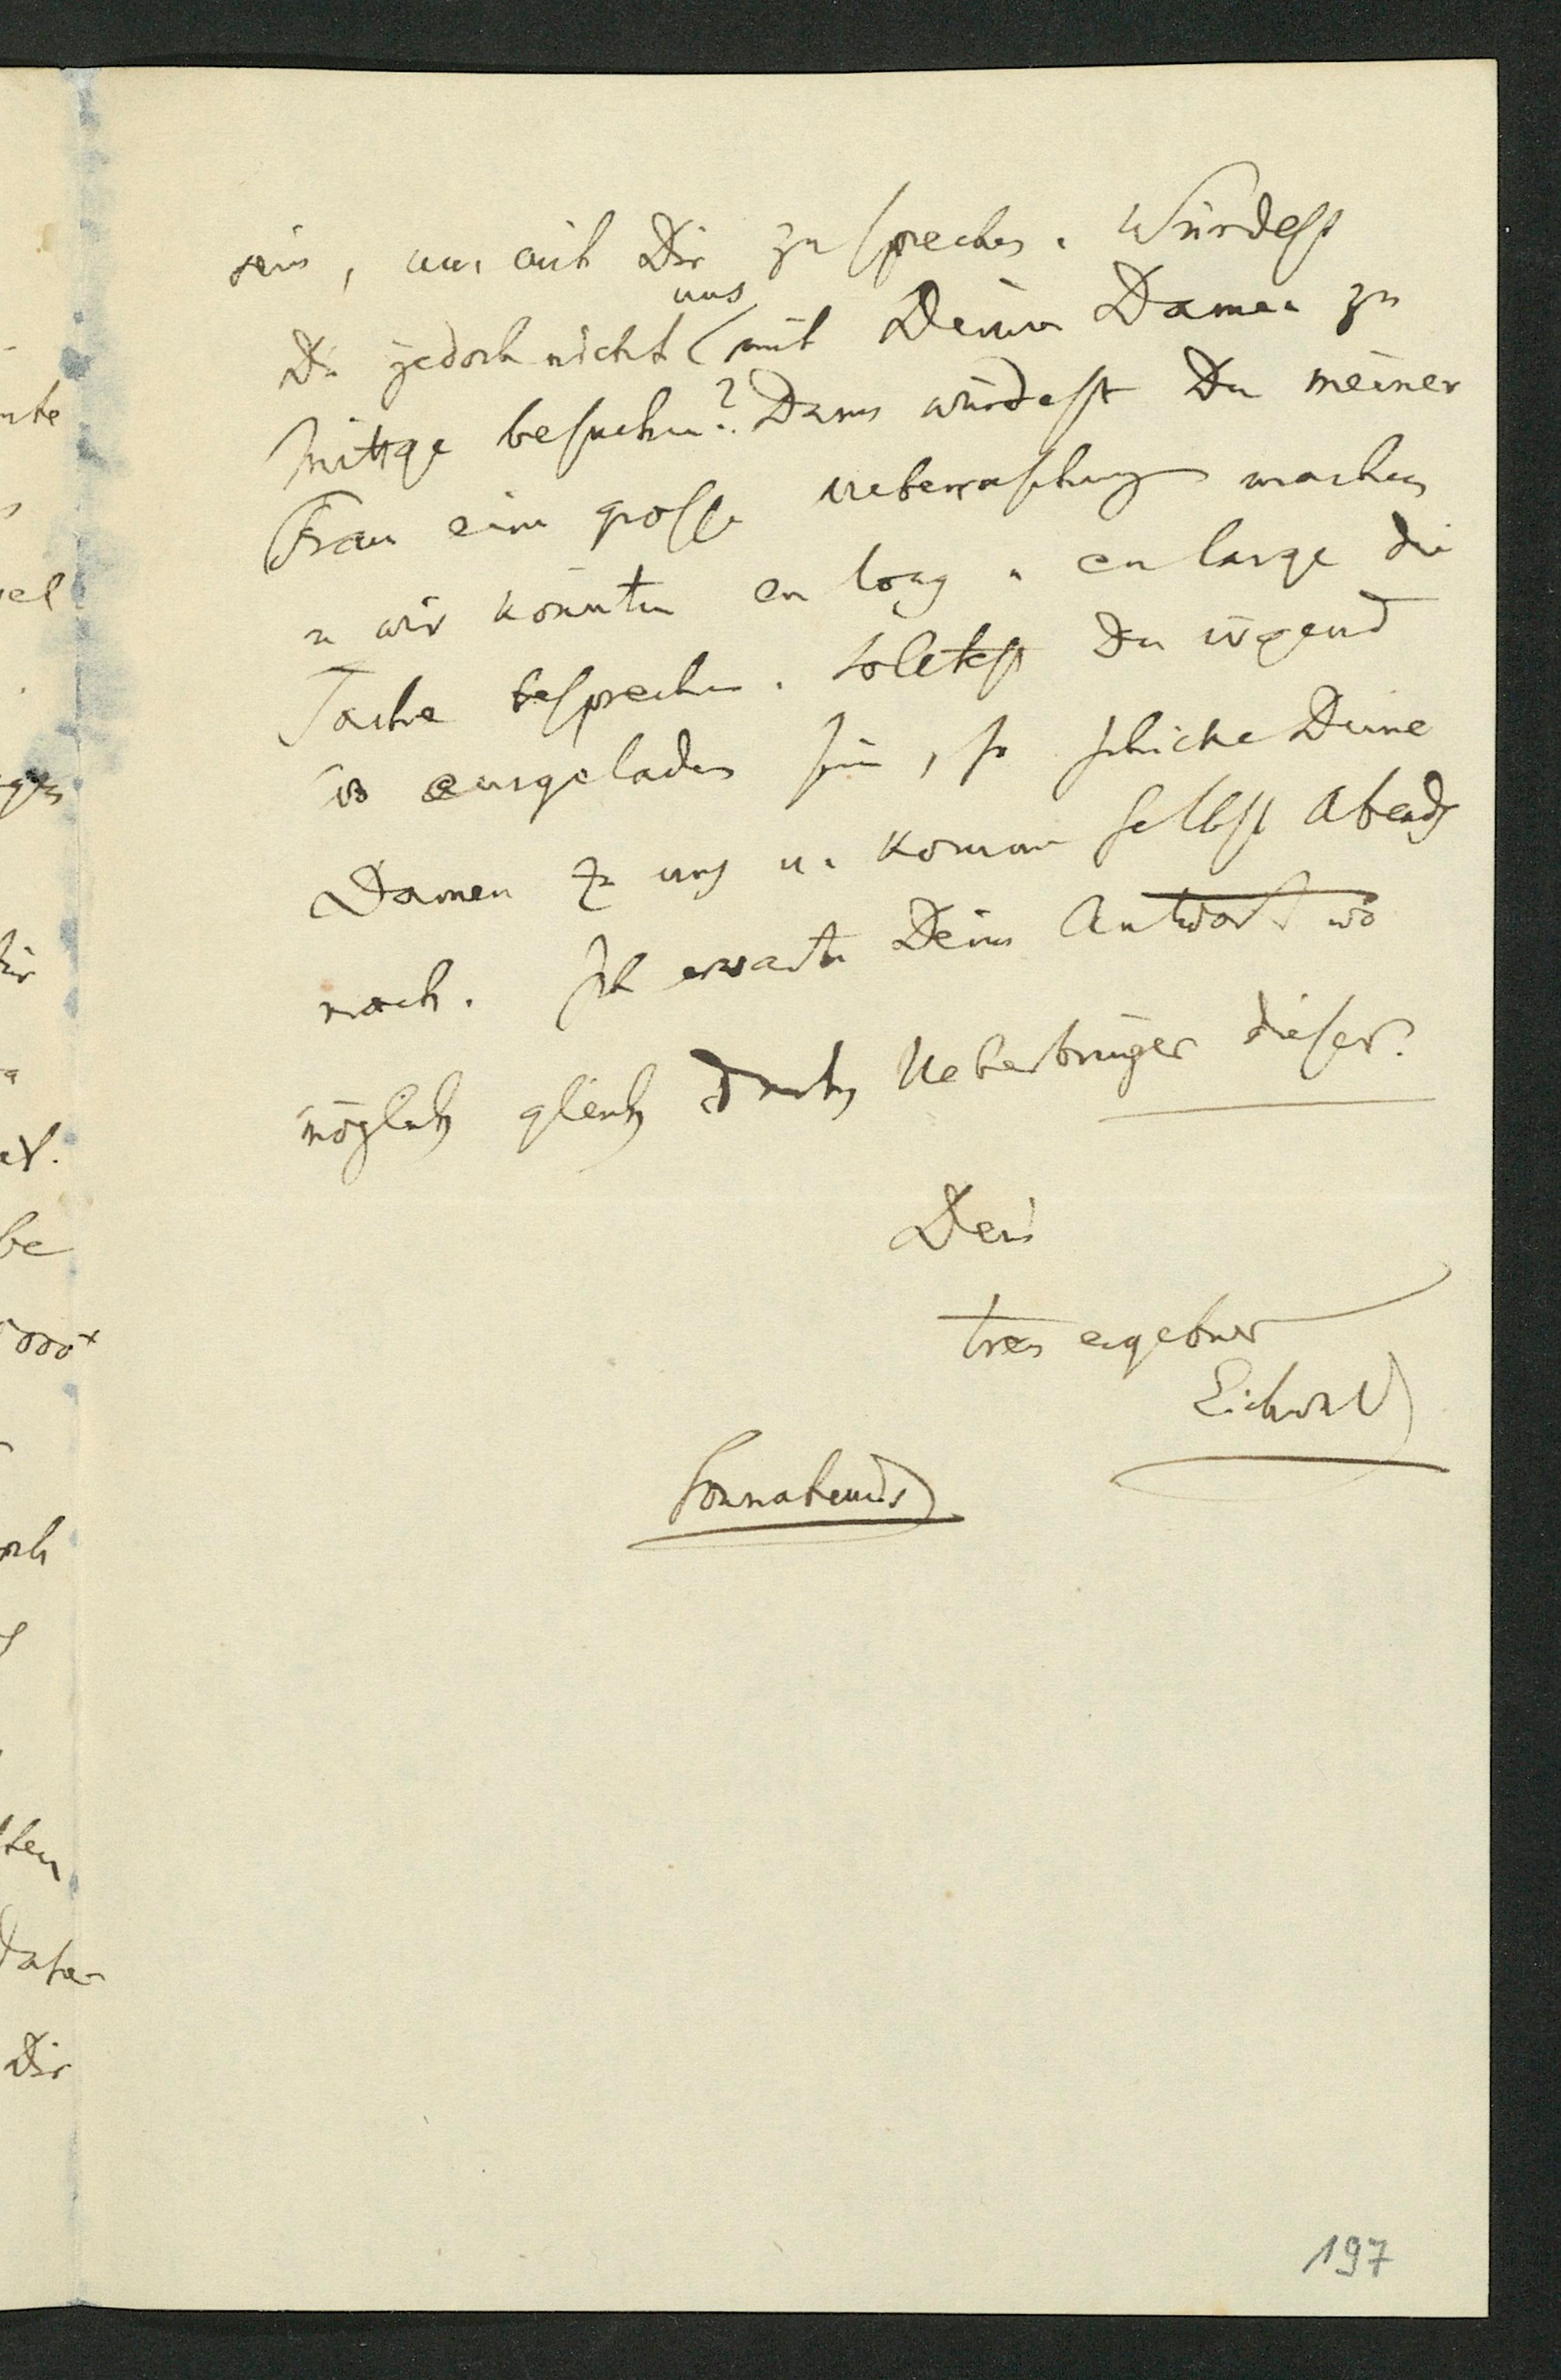 sein, um mit Dir zu sprechen. Würdest
uns
Du jedoch nicht mit Deinen Damen zu
Mittge besuchen? Dann würdest Du meiner
Frau eine grosse Ueberraschung machen
u wir könnten en long u en large die
Sache besprechen. Solltest Du irgend
wo eingeladen sein, so schicke Deine
Damen zu uns u. komme selbst Abends
nach. Ich erwarte Deine Antwort wo
möglich gleich durch Ueberbringer dieser.
Dein
treu ergebner
Eichwald
Sonnabends
197
nte
el
gen
ür
et.
be
5000
ch
ten
Daher
Dir